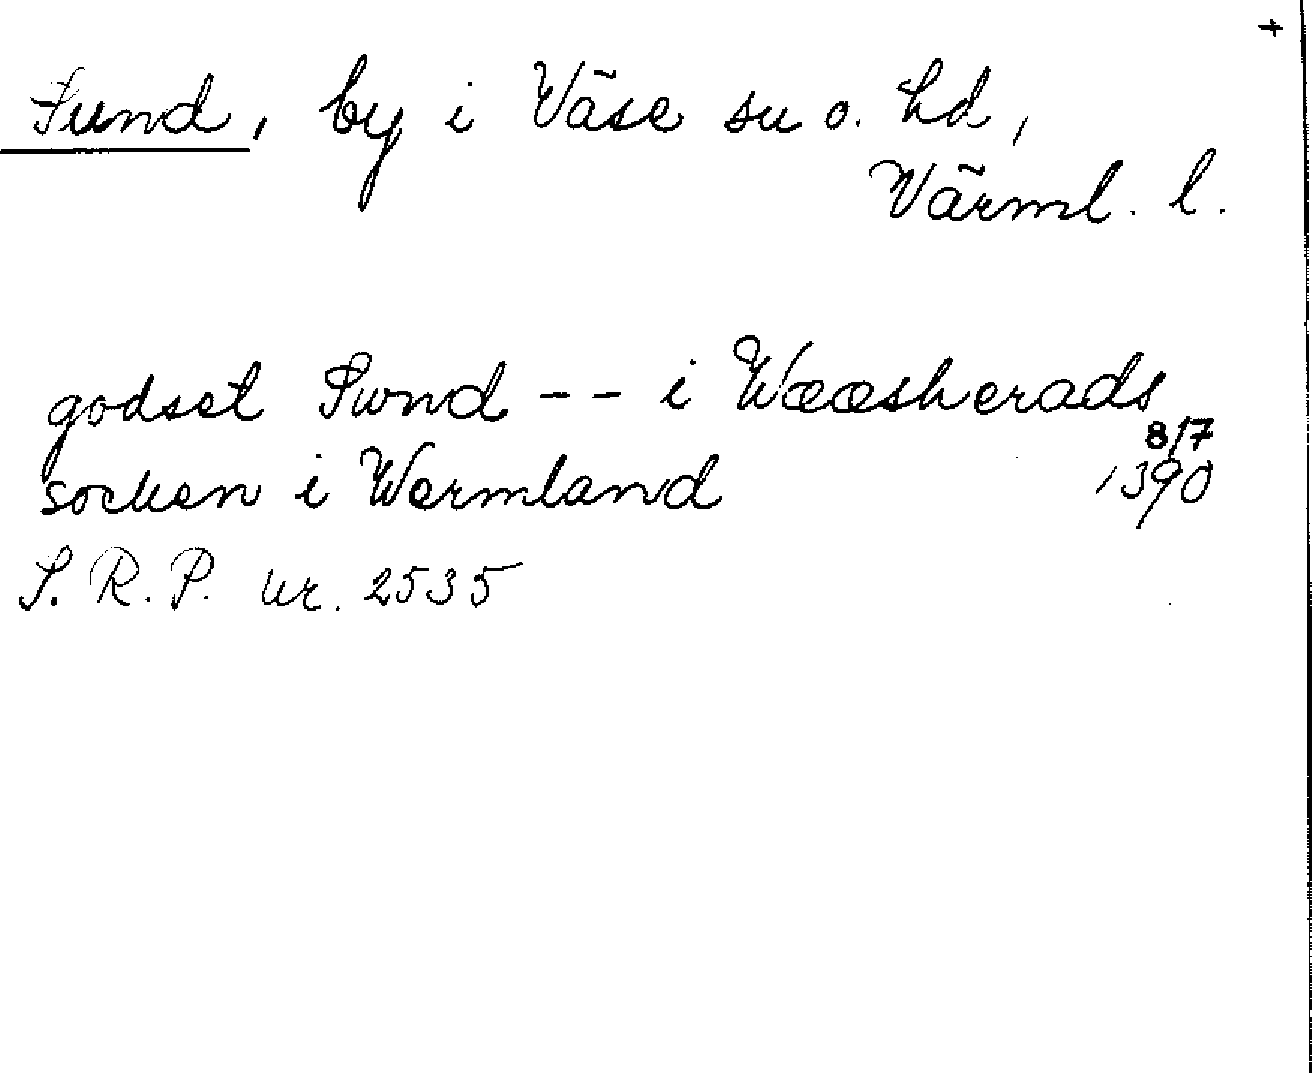 +
Sund, by i Väse su o. hd,
Värml. l.
godset Swnd -- i Wææsherads
8/7
socken i Wermland 1390
S. R. P. nr. 2535